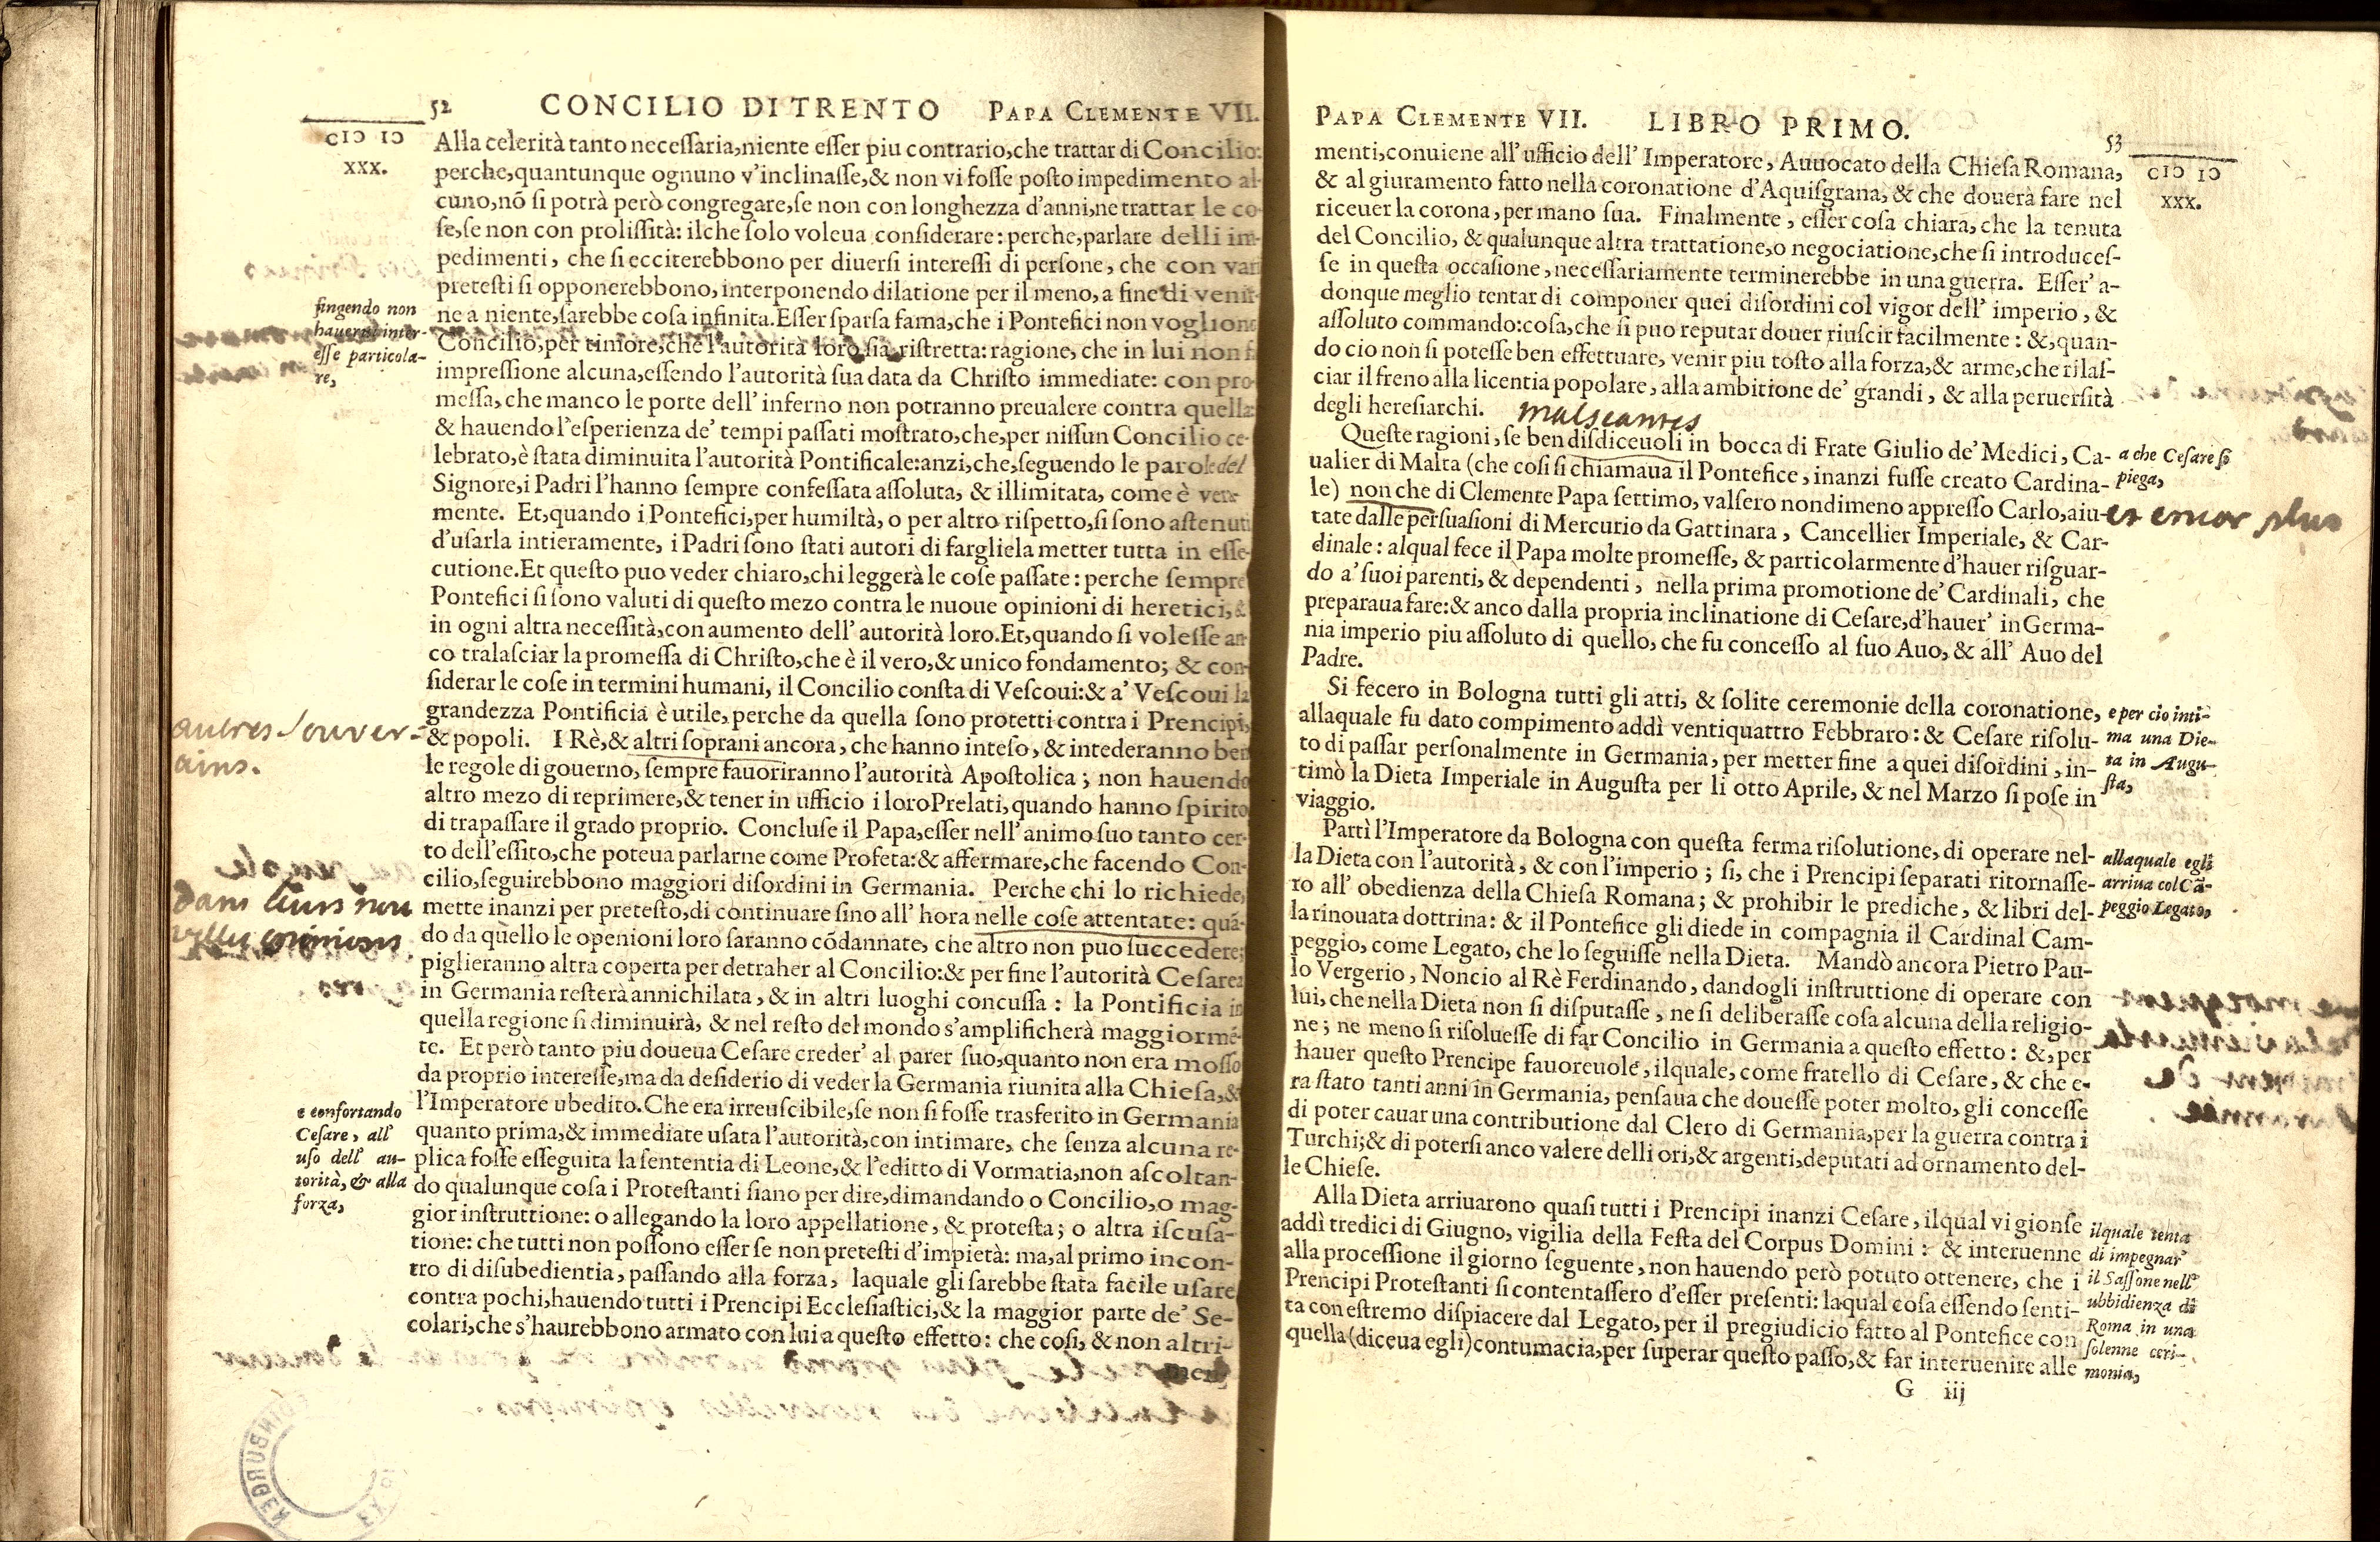 52 CONCILIO DI TRENTO PAPA CLEMENTE VII.
CIↃ IↃ
XXX.
Alla celerità tanto necessaria,niente esser piu contrario,che trattar di Concilio:
perche,quantunque ognuno v'inclinasse,& non vi fosse posto impedimento al-
cuno,nō si potrà però congregare,se non con longhezza d'anni,ne trattar le co-
se,se non con prolissità: ilche solo voleua considerare: perche,parlare delli im-
pedimenti, che si ecciterebbono per diuersi interessi di persone, che con varii
pretesti si opponerebbono, interponendo dilatione per il meno, a fine di venir-
ne a niente,sarebbe cosa infinita.Esser sparsa fama,che i Pontefici non vogliono
Concilio,per timore,che l'autorità loro sia ristretta: ragione, che in lui non f
impressione alcuna,essendo l'autorità sua data da Christo immediate: con pro-
messa, che manco le porte dell' inferno non potranno preualere contra quella:
& hauendo l'esperienza de' tempi passati mostrato,che,per nissun Concilio ce-
lebrato,è stata diminuita l'autorità Pontificale:anzi,che,seguendo le parole del
Signore,i Padri l'hanno sempre confessata assoluta, & illimitata, come è vera-
mente. Et,quando i Pontefici,per humiltà, o per altro rispetto,si sono astenuti
d'usarla intieramente, i Padri sono stati autori di fargliela metter tutta in esse-
cutione.Et questo puo veder chiaro,chi leggerà le cose passate: perche sempre
Pontefici si sono valuti di questo mezo contra le nuoue opinioni di heretici,&
in ogni altra necessità,con aumento dell' autorità loro.Et,quando si volesse an-
co tralasciar la promessa di Christo,che è il vero,& unico fondamento; & con-
siderar le cose in termini humani, il Concilio consta di Vescoui:& a' Vescoui la
grandezza Pontificia è utile, perche da quella sono protetti contra i Prencipi,
& popoli. I Rè,& altri soprani ancora, che hanno inteso, & intederanno ben
le regole di gouerno, sempre fauoriranno l'autorità Apostolica ; non hauendo
altro mezo di reprimere,& tener in ufficio i loro Prelati, quando hanno spirito
di trapassare il grado proprio. Concluse il Papa,esser nell'animo suo tanto cer-
to dell'essito,che poteua parlarne come Profeta:& affermare,che facendo Con-
cilio,seguirebbono maggiori disordini in Germania. Perche chi lo richiede,
mette inanzi per pretesto,di continuare sino all' hora nelle cose attentate: quā-
do da quello le openioni loro saranno cōdannate, che altro non puo succedere;
piglieranno altra coperta per detraher al Concilio:& per fine l'autorità Cesarea
in Germania resterà annichilata, & in altri luoghi concussa : la Pontificia in
quella regione si diminuirà, & nel resto del mondo s'amplificherà maggiormē-
te. Et però tanto piu doueua Cesare creder' al parer suo,quanto non era mosso
da proprio interesse,ma da desiderio di veder la Germania riunita alla Chiesa,&
l'Imperatore ubedito.Che era irreuscibile,se non si fosse trasferito in Germania
quanto prima,& immediate usata l'autorità,con intimare, che senza alcuna re-
plica fosse esseguita la sententia di Leone,& l'editto di Vormatia,non ascoltan-
do qualunque cosa i Protestanti siano per dire,dimandando o Concilio,o mag-
gior instruttione: o allegando la loro appellatione, & protesta; o altra iscusa-
tione: che tutti non possono esser se non pretesti d'impietà: ma,al primo incon-
tro di disubedientia, passando alla forza, laquale gli sarebbe stata facile usare
contra pochi,hauendo tutti i Prencipi Ecclesiastici,& la maggior parte de' Se-
colari,che s'haurebbono armato con lui a questo effetto: che cosi, & non altri-
men-
fingendo non
hauerui inter-
esse particola-
re,
autres souver-
ains.
dans leurs nou
velles opinions
e confortando
Cesare, all'
uso dell' au-
torità, & alla
forza,
PAPA CLEMENTE VII. LIBRO PRIMO. 53
CIↃ IↃ
XXX.
menti,conuiene all' ufficio dell' Imperatore, Auuocato della Chiesa Romana,
& al giuramento fatto nella coronatione d'Aquisgrana, & che douerà fare nel
riceuer la corona, per mano sua. Finalmente, esser cosa chiara, che la tenuta
del Concilio, & qualunque altra trattatione,o negociatione,che si introduces-
se in questa occasione, necessariamente terminerebbe in una guerra. Esser' a-
donque meglio tentar di componer quei disordini col vigor dell' imperio, &
assoluto commando:cosa,che si puo reputar douer riuscir facilmente : &,quan-
do cio non si potesse ben effettuare, venir piu tosto alla forza,& arme,che rilas-
ciar il freno alla licentia popolare, alla ambitione de' grandi, & alla peruersità
degli heresiarchi.
malseantes
Queste ragioni, se ben disdiceuoli in bocca di Frate Giulio de' Medici, Ca-
ualier di Malta (che cosi si chiamaua il Pontefice, inanzi fusse creato Cardina-
le) non che di Clemente Papa settimo, valsero nondimeno appresso Carlo,aiu-
tate dalle persuasioni di Mercurio da Gattinara, Cancellier Imperiale, & Car-
dinale: alqual fece il Papa molte promesse, & particolarmente d'hauer risguar-
do a' suoi parenti, & dependenti, nella prima promotione de' Cardinali, che
preparaua fare:& anco dalla propria inclinatione di Cesare,d'hauer' in Germa-
nia imperio piu assoluto di quello, che fu concesso al suo Auo, & all' Auo del
Padre.
Si fecero in Bologna tutti gli atti, & solite ceremonie della coronatione,
allaquale fu dato compimento addì ventiquattro Febbraro: & Cesare risolu-
to di passar personalmente in Germania, per metter fine a quei disordini, in-
timò la Dieta Imperiale in Augusta per li otto Aprile, & nel Marzo si pose in
viaggio.
Partì l'Imperatore da Bologna con questa ferma risolutione, di operare nel-
la Dieta con l'autorità, & con l'imperio ; si, che i Prencipi separati ritornasse-
ro all' obedienza della Chiesa Romana; & prohibir le prediche, & libri del-
la rinouata dottrina: & il Pontefice gli diede in compagnia il Cardinal Cam-
peggio, come Legato, che lo seguisse nella Dieta. Mandò ancora Pietro Pau-
lo Vergerio, Noncio al Rè Ferdinando, dandogli instruttione di operare con
lui, che nella Dieta non si disputasse, ne si deliberasse cosa alcuna della religio-
ne; ne meno si risoluesse di far Concilio in Germania a questo effetto : &, per
hauer questo Prencipe fauoreuole, ilquale, come fratello di Cesare, & che e-
ra stato tanti anni in Germania, pensaua che douesse poter molto, gli concesse
di poter cauar una contributione dal Clero di Germania,per la guerra contra i
Turchi;& di potersi anco valere delli ori,& argenti,deputati ad ornamento del-
le Chiese.
Alla Dieta arriuarono quasi tutti i Prencipi inanzi Cesare, ilqual vi gionse
addì tredici di Giugno, vigilia della Festa del Corpus Domini : & interuenne
alla processione il giorno seguente, non hauendo però potuto ottenere, che i
Prencipi Protestanti si contentassero d'esser presenti: laqual cosa essendo senti-
ta con estremo dispiacere dal Legato, per il pregiudicio fatto al Pontefice con
quella (diceua egli) contumacia,per superar questo passo,& far interuenire alle
G iij
a che Cesare si
piega,
et encor plus
e per cio inti-
ma una Die-
ta in Augu-
sta,
allaquale egli
arriua col Cā-
peggio Legato,
ilquale tenta
di impegnar
il Sassone nell'
ubbidienza di
Roma in una
solenne ceri-
monia,